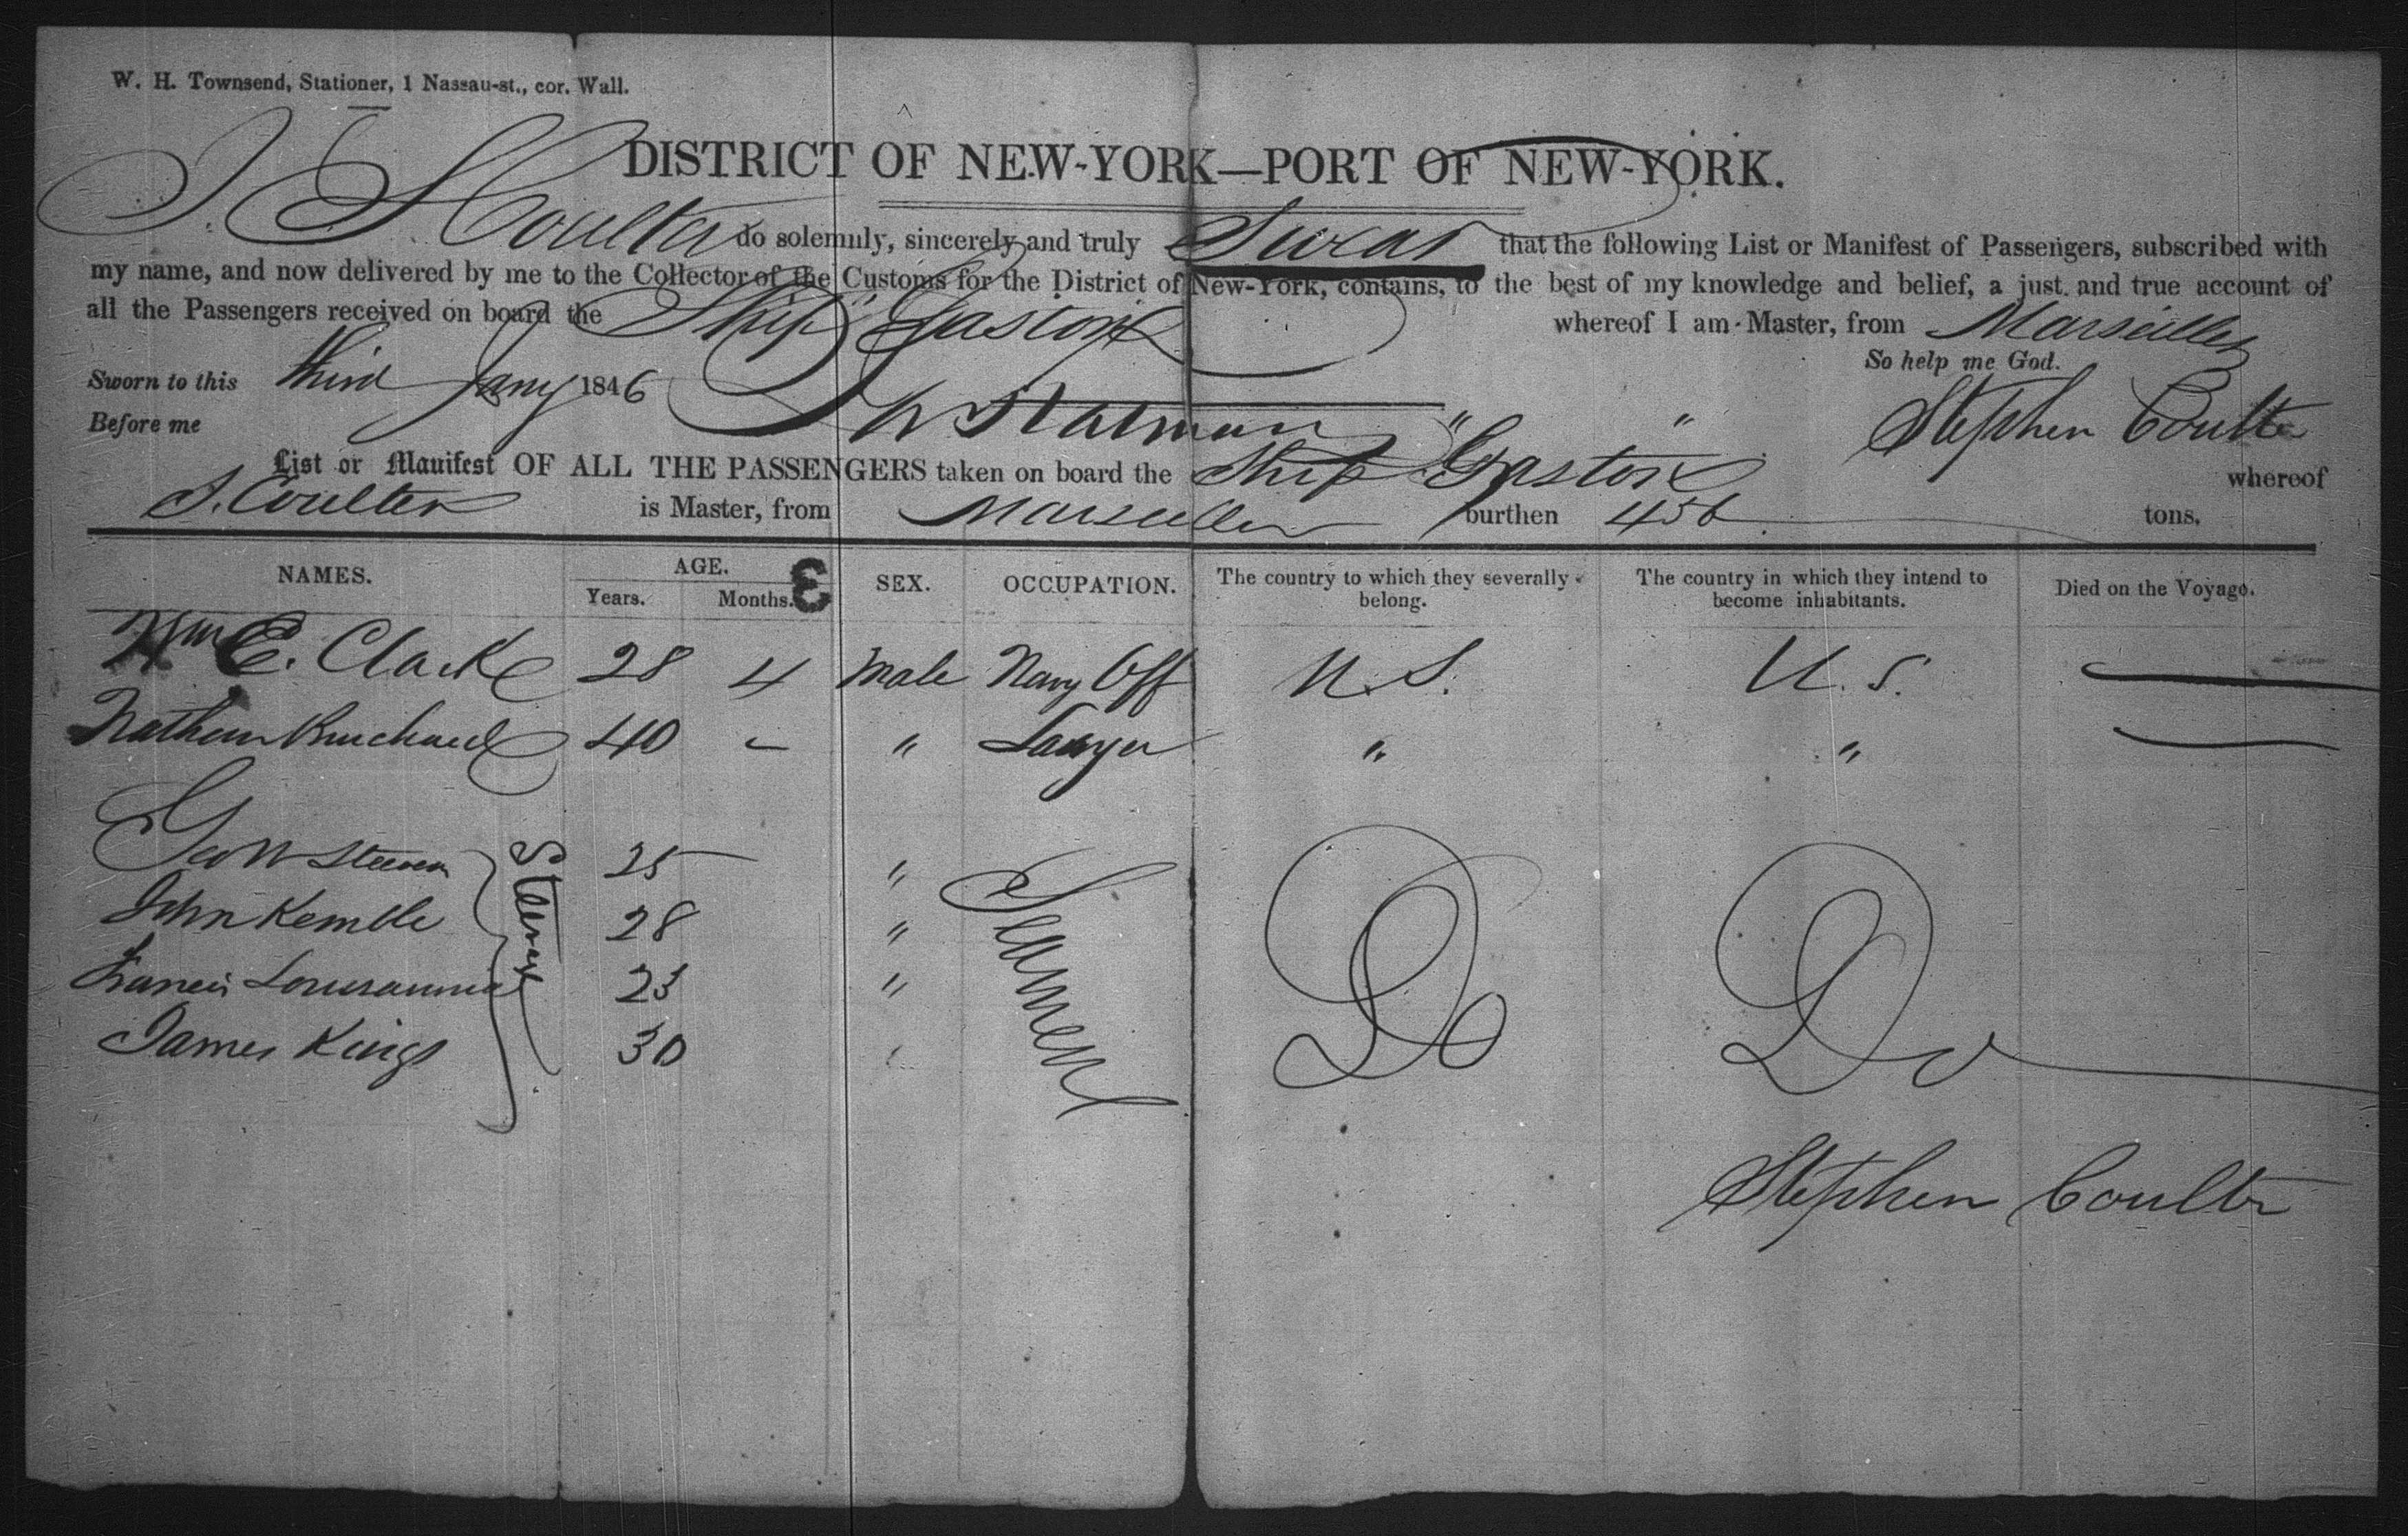 W. H. Townsend, Stationer, 1 Nassau-st., cor. Wall.
DISTRICT OF NEW-YORK—PORT OF NEW-YORK.
I, S Coulter do solemnly, sincerely and truly Swear that the following List or Manifest of Passengers, subscribed with
my name, and now delivered by me to the Collector of the Customs for the District of New-York, contains, to the best of my knowledge and belief, a just and true account of
all the Passengers received on board the Ship Gaston whereof I am Master, from Marseilles
So help me God.
Sworn to this third Jany 1846
Before me Stephen Coulter
List or Manifest OF ALL THE PASSENGERS taken on board the Ship "Gaston" whereof
S. Coulter is Master, from Marseilles burthen 456 tons.
NAMES. AGE. Years. Months. 3 SEX. OCCUPATION. The country to which they severally belong. The country in which they intend to become inhabitants. Died on the Voyage.
Wm E. Clark 28 4 Male Navy Off U.S. U.S. —
Nathan Burchard 40 - " Lawyer " " —
Geo W Steeven 25 "
John Kemble 28 "
Francis 23 "
James Kings 30 "
Steerage
Seamen Do Do
Stephen Coulter